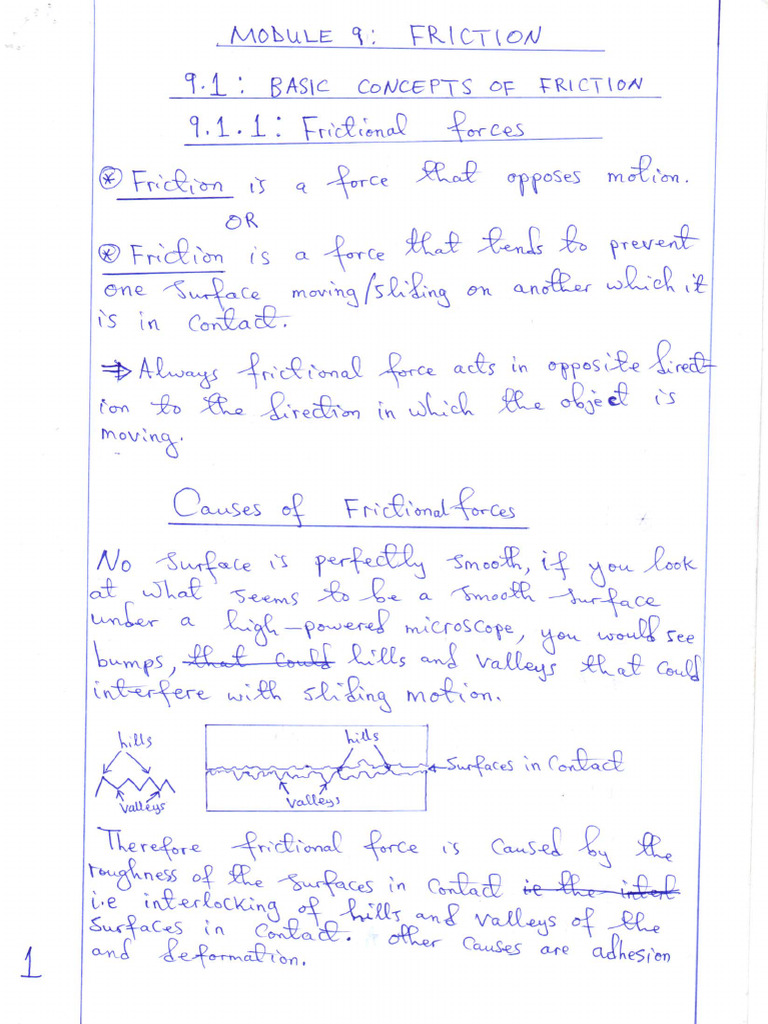 MODULE 9: FRICTION
9.1: BASIC CONCEPTS OF FRICTION
9.1.1: Frictional forces
⊛ Friction is a force that opposes motion.
OR
⊛ Friction is a force that tends to prevent
one surface moving/sliding on another which it
is in contact.
⇒ Always frictional force acts in opposite direct-
ion to the direction in which the object is
moving.
Causes of Frictional forces
No surface is perfectly smooth, if you look
at what seems to be a smooth surface
under a high-powered microscope, you would see
bumps, that could hills and valleys that could
interfere with sliding motion.
hills
valleys
hills
valleys
Surfaces in Contact
Therefore frictional force is caused by the
roughness of the surfaces in contact ie the interl
i.e interlocking of hills and valleys of the
surfaces in contact. Other causes are adhesion
and deformation.
1